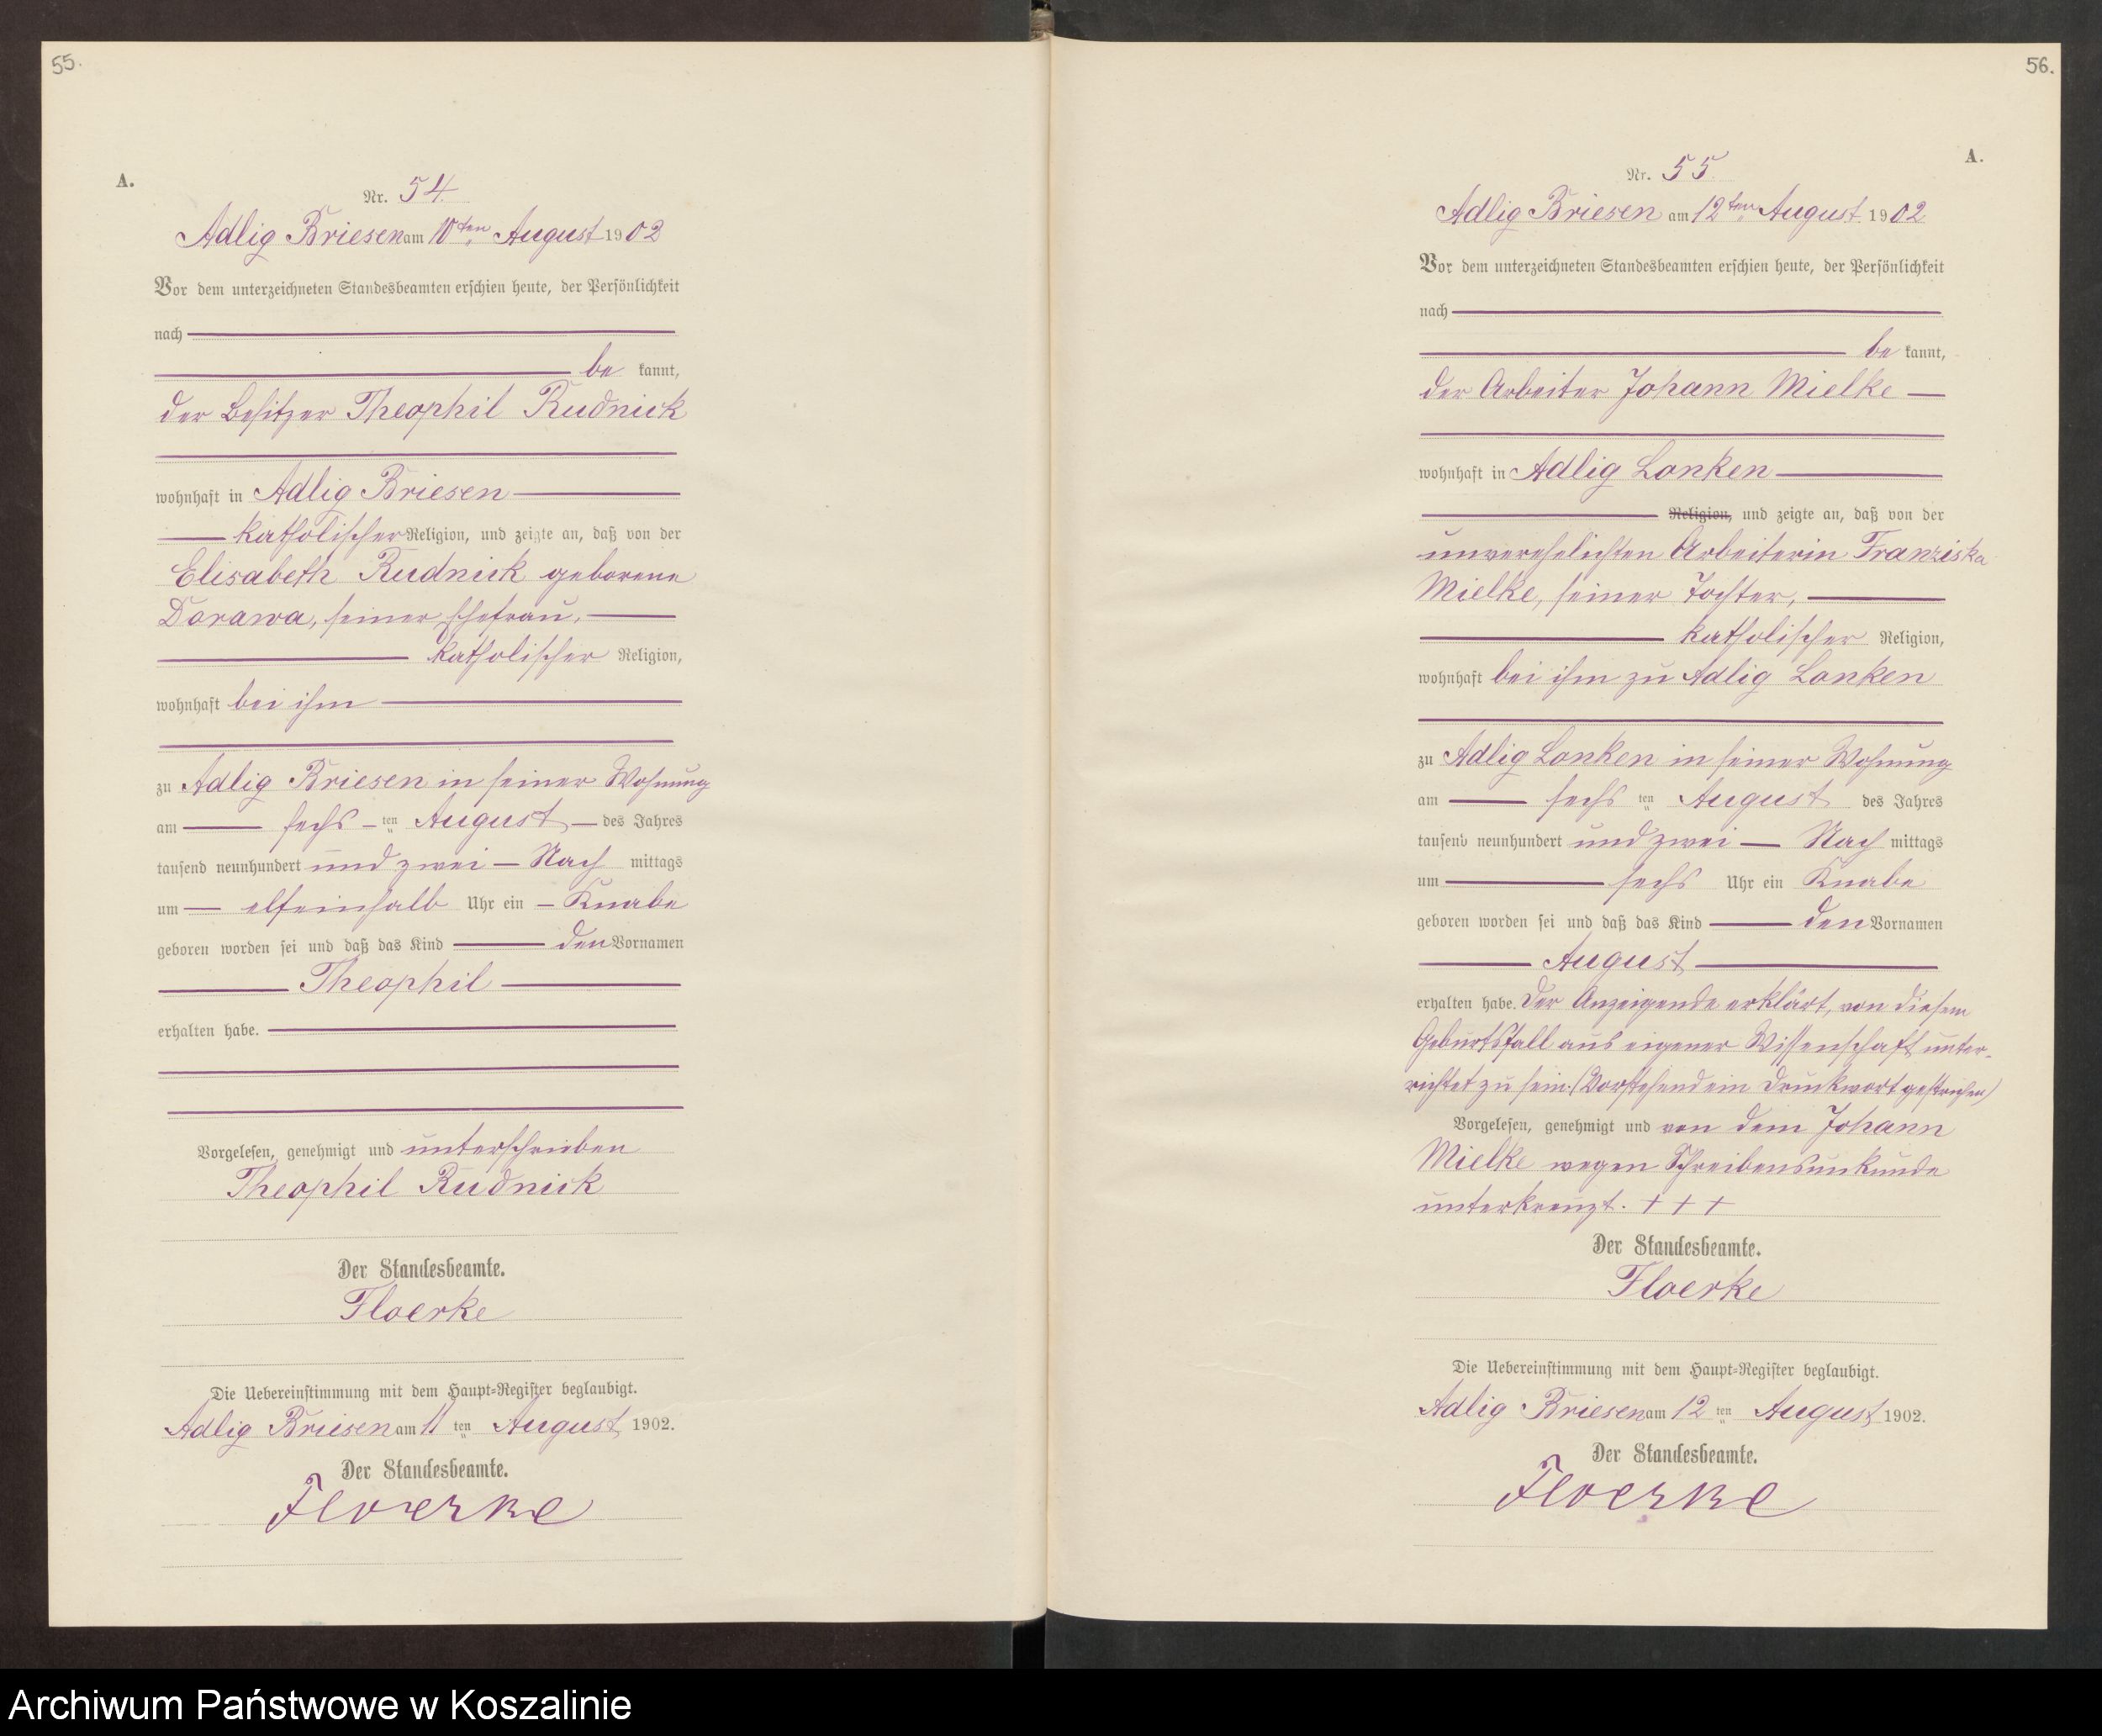 55.
A.
Nr. 54.
Adlig Briesen am 10ten August 1902
Vor dem unterzeichneten Standesbeamten erschien heute, der Persönlichkeit
nach
be kannt,
der Besitzer Theophil Rudnick
wohnhaft in Adlig Briesen
katholischer Religion, und zeigte an, daß von der
Elisabeth Rudnick geborene
Dorawa, seiner Ehefrau,
katholischer Religion,
wohnhaft bei ihm
zu Adlig Briesen in seiner Wohnung
am sechs ten August des Jahres
tausend neunhundert und zwei Nach mittags
um elfeinhalb Uhr ein Knabe
geboren worden sei und daß das Kind den Vornamen
Theophil
erhalten habe.
Vorgelesen, genehmigt und unterschrieben
Theophil Rudnick
Der Standesbeamte.
Floerke
Die Uebereinstimmung mit dem Haupt-Register beglaubigt.
Adlig Briesen am 11 ten August 1902.
Der Standesbeamte.
Floerke
56.
A.
Nr. 55.
Adlig Briesen am 12ten August 1902
Vor dem unterzeichneten Standesbeamten erschien heute, der Persönlichkeit
nach
be kannt,
der Arbeiter Johann Mielke
wohnhaft in Adlig Lonken
Religion, und zeigte an, daß von der
unverehelichten Arbeiterin Franziska
Mielke, seiner Tochter,
katholischer Religion,
wohnhaft bei ihm zu Adlig Lonken
zu Adlig Lonken in seiner Wohnung
am sechs ten August des Jahres
tausend neunhundert und zwei Nach mittags
um sechs Uhr ein Knabe
geboren worden sei und daß das Kind den Vornamen
August
erhalten habe. Der Anzeigende erklärt, von diesem
Geburtsfall aus eigener Wissenschaft unter-
richtet zu sein. (Vorstehend ein Druckwort gestrichen)
Vorgelesen, genehmigt und von dem Johann
Mielke wegen Schreibensunkunde
unterkreuzt. + + +
Der Standesbeamte.
Floerke
Die Uebereinstimmung mit dem Haupt-Register beglaubigt.
Adlig Briesen am 12 ten August 1902.
Der Standesbeamte.
Floerke
Archiwum Państwowe w Koszalinie